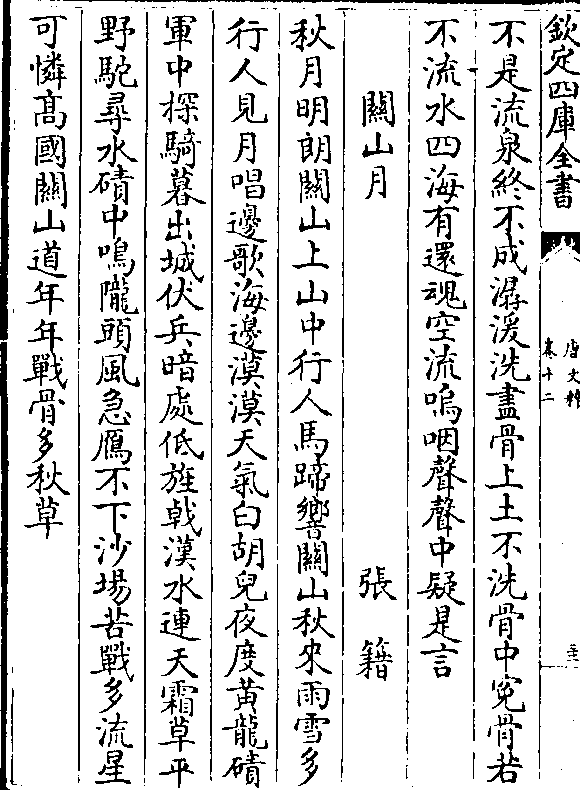 欽定四庫全書
唐文粹
卷十二
不是流泉終不成潺湲洗盡骨上土不洗骨中寃骨若
不流水四海有還魂空流嗚咽聲聲中疑是言
關山月 張籍
秋月明朗關山上山中行人馬蹄響關山秋來雨雪多
行人見月唱邊歌海邊漠漠天氣白胡兒夜度黃龍磧
軍中探騎暮出城伏兵暗處低旌戟漢水連天霜草平
野駝尋水磧中鳴隴頭風急鴈不下沙場苦戰多流星
可憐高國關山道年年戰骨多秋草